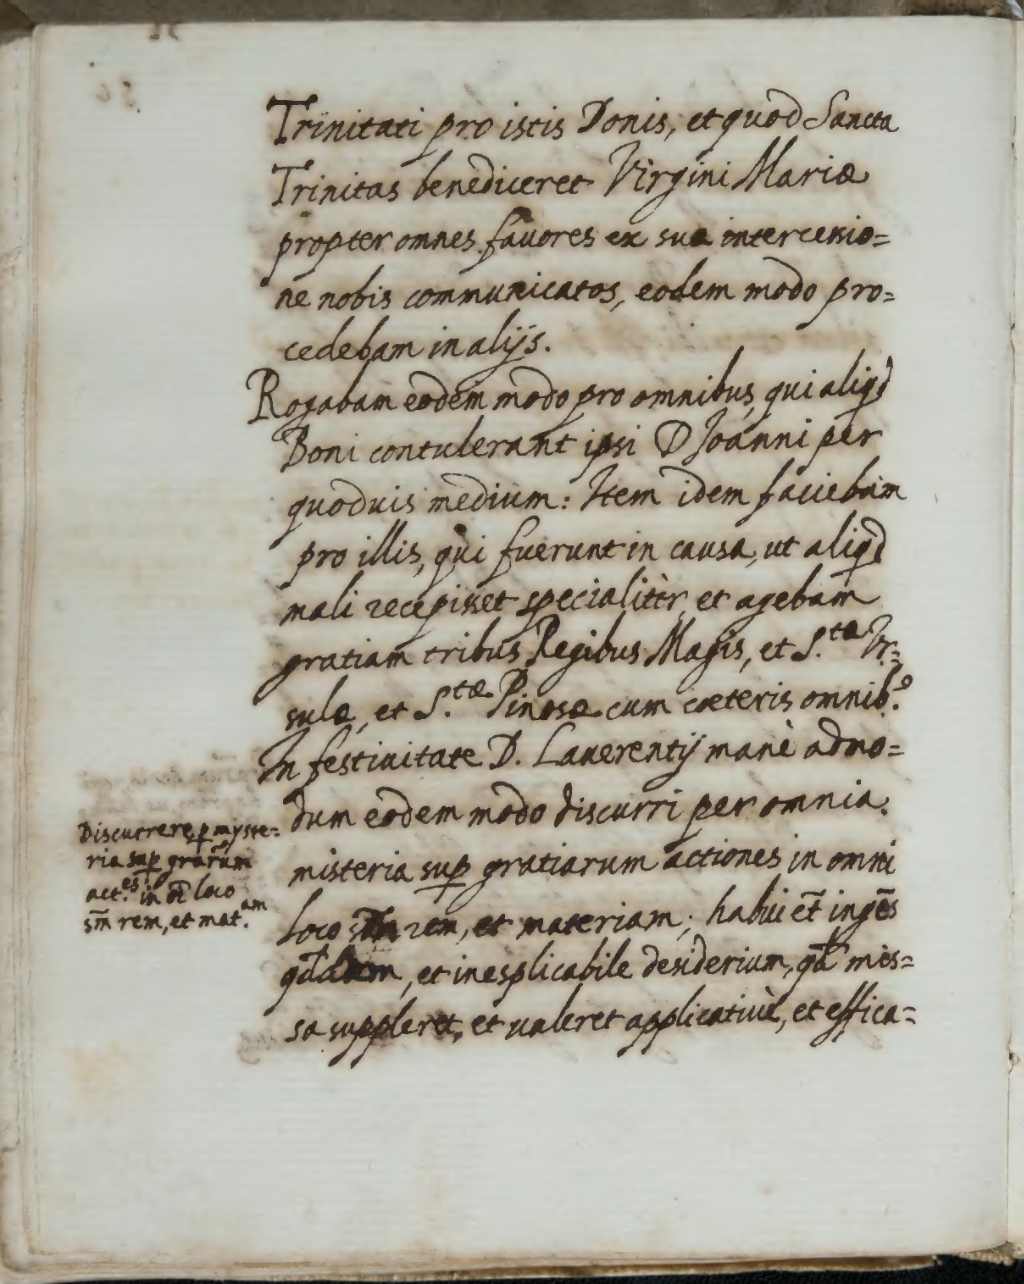 Trinitati pro istis Donis, et quod Sancta
Trinitas benediceret Virgini Mariæ
propter omnes favores ex sua intercessio=
ne nobis communicatos, eodem modo pro=
cedebam in alijs.
Rogabam eodem modo pro omnibus, qui aliqd
Boni contulerant ipsi D Joanni per
quoduis medium: Item idem faciebam
pro illis, qui fuerunt in causa, ut aliqd
mali recepisset specialitèr, et agebam
gratiam tribus Regibus Magis, et S.tæ Vr=
sulæ, et S.tæ Pinosæ cum cæteris omnib.9
In festiuitate D. Laurentij manè admo=
dum eodem modo discurri per omnia
misteria sup gratiarum actiones in omni
loco sm̃ rem, et materiam; habui et̃ ingẽs
, et inesplicabile desiderium, qd̃ mis=
sa suppleret, et ualeret applicatiuè, et effica=
Discurrere p myste=
ria sup gratia̅rum
act.es in oi̅ loco
sm̃ rem, et mat.am